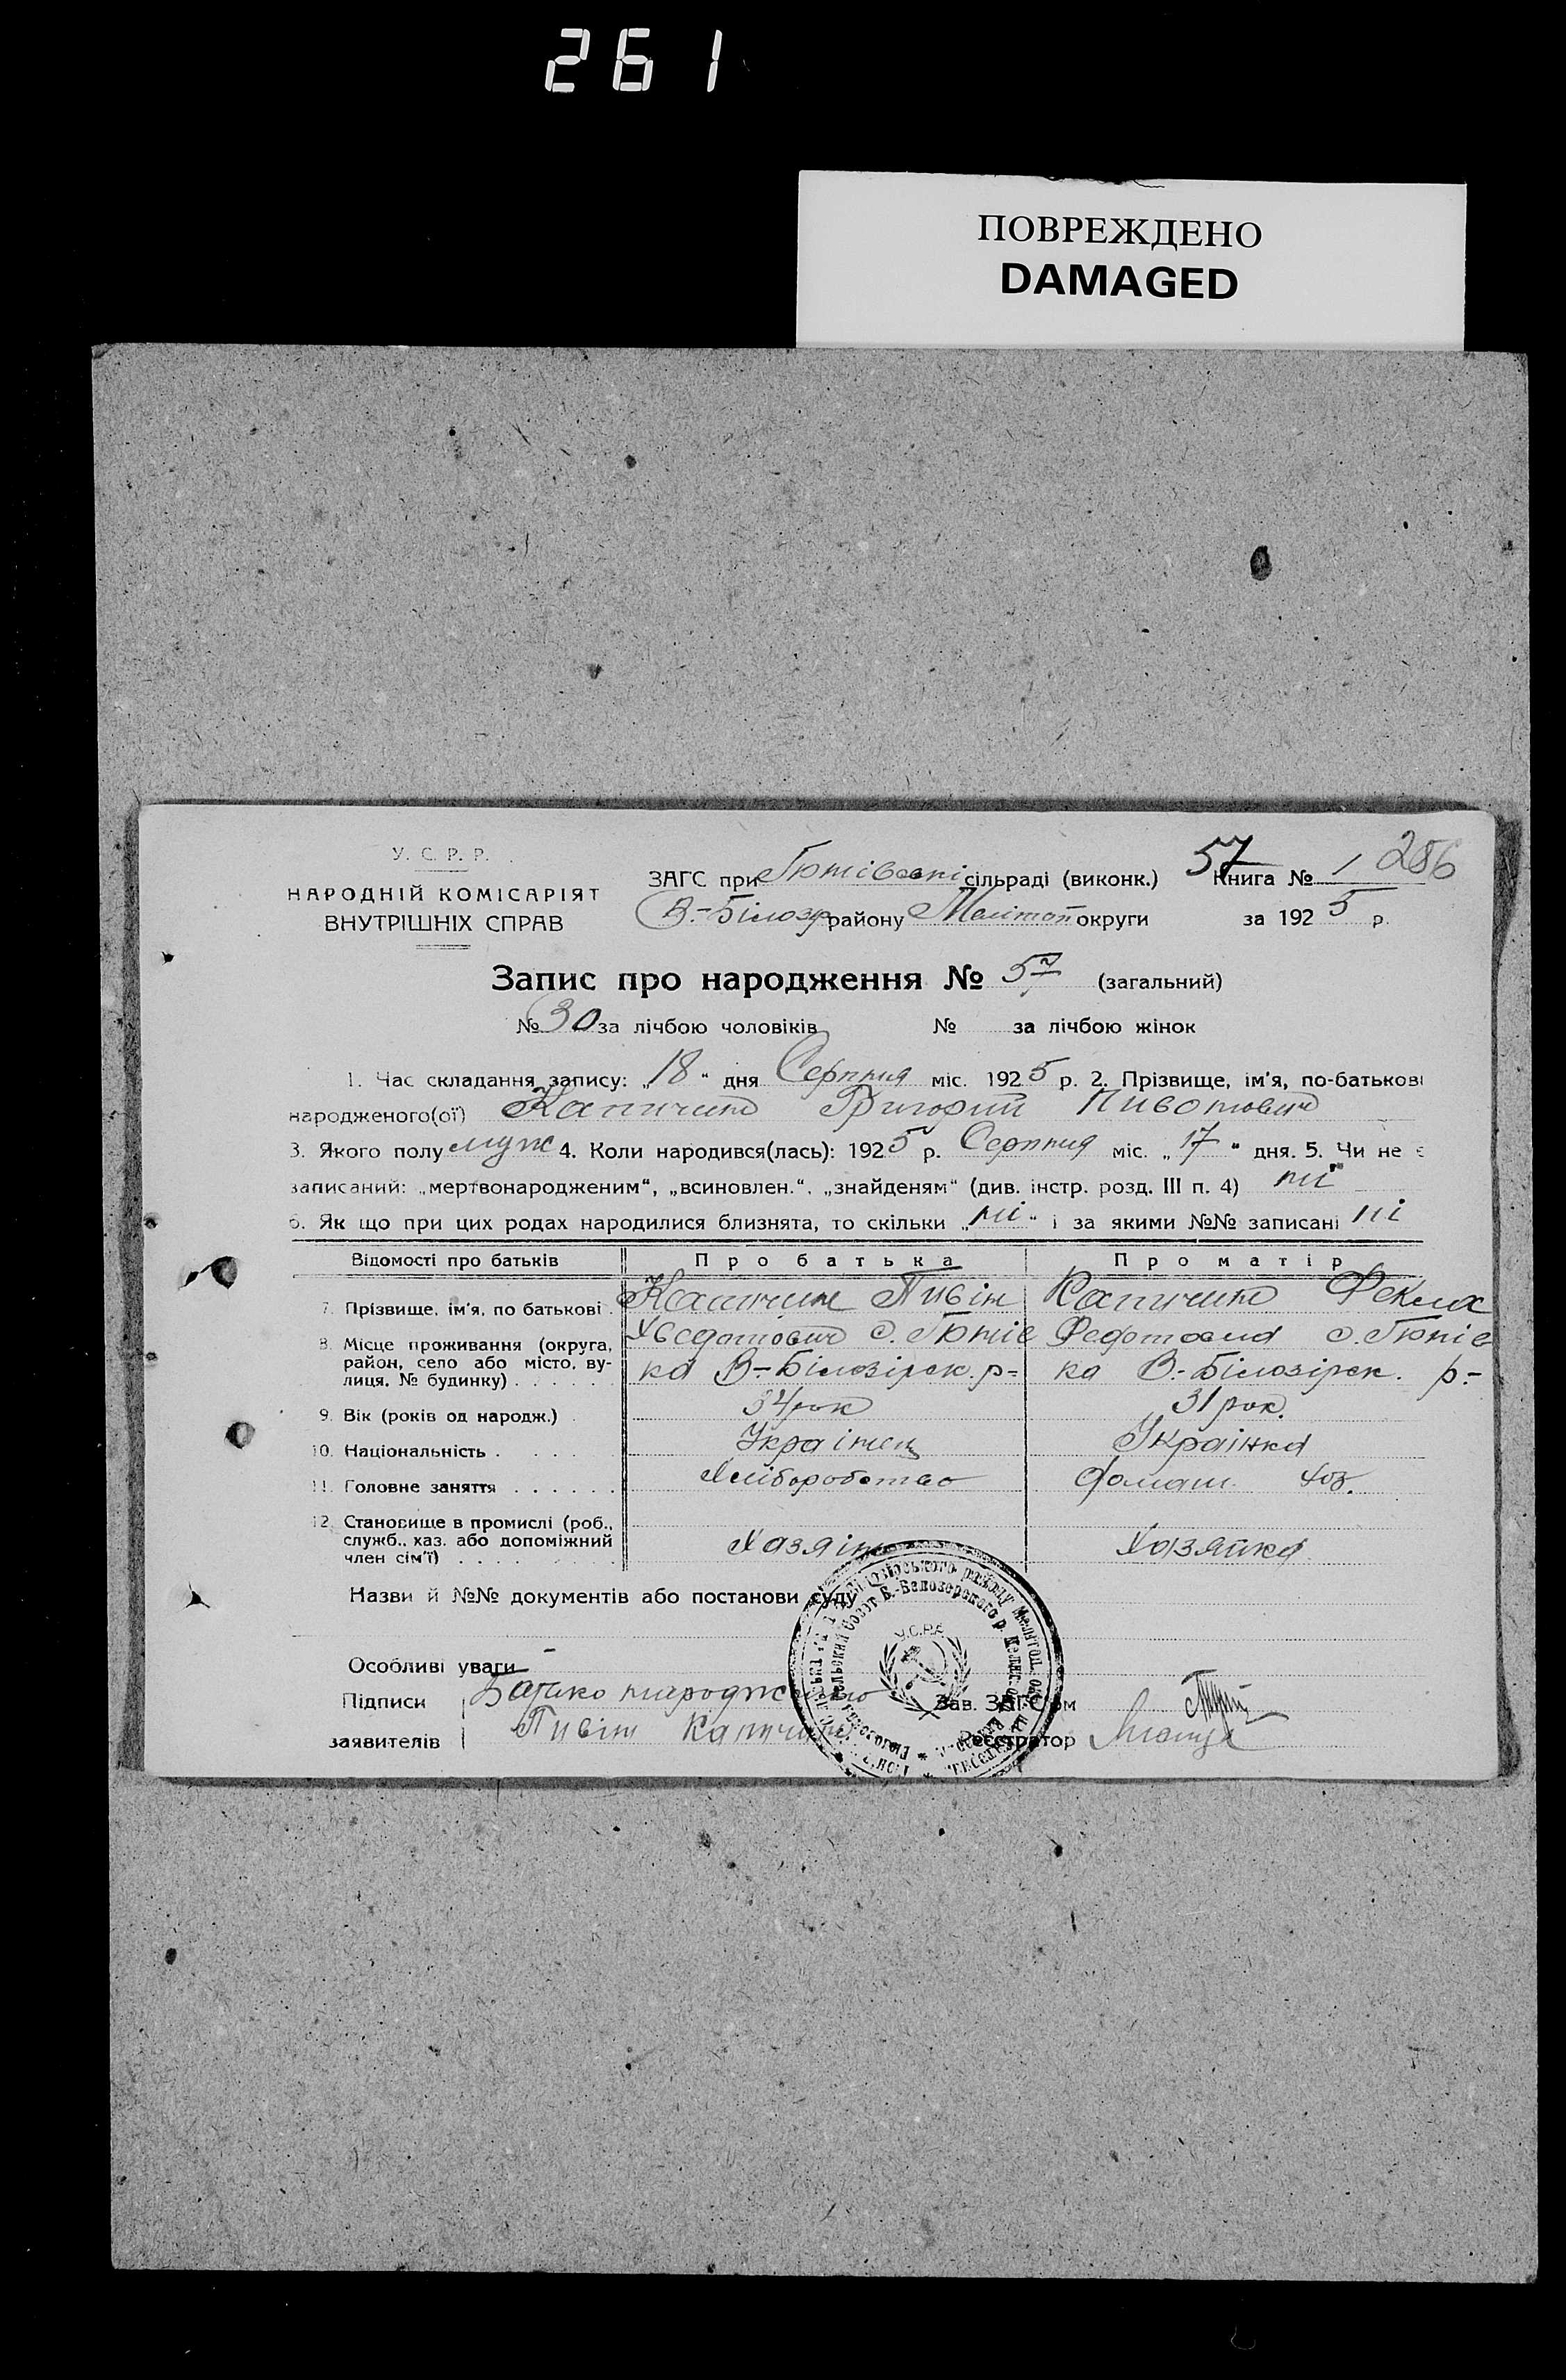 261
ПОВРЕЖДЕНО
DAMAGED
У. С. Р. Р.
НАРОДНІЙ КОМІСАРІЯТ
ВНУТРІШНІХ СПРАВ
57 286
ЗАГС при Гюнівські сільраді (виконк.) Книга № 1
В.-Білозір району Мелітоп округи за 1925 р.
Запис про народження № 57 (загальний)
№ 30 за лічбою чоловіків № за лічбою жінок
1. Час складання запису: „18“ дня Серпня міс. 1925 р. 2. Прізвище, ім'я, по-батькові
народженого(ої) Григорий
3. Якого полу муж 4. Коли народився(лась): 1925 р. Серпня міс. „17“ дня. 5. Чи не є
записаний: „мертвонародженим“, „всиновлен.“, „знайденям“ (див. інстр. розд. III п. 4) ні
6. Як що при цих родах народилися близнята, то скільки „ні“ і за якими №№ записані ні
Відомості про батьків Про батька Про матір
7. Прізвище, ім'я, по батькові . Пивін Фекла
8. Місце проживання (округа, район, село або місто, вулиця, № будинку) . . . . . Хведотович с. Гюнів Федотовна с. Гюнів
ка В.-Білозірск. р- ка В.-Білозірск. р.-
9. Вік (років од народж.) . 34 рок 31 рок.
10. Національність . . . . . Українец Українка
11. Головне заняття . . . . . . Хліборобство домаш. хоз.
12. Становище в промислі (роб., служб., хаз. або допоміжний член сім'ї) . . . . . . . Хазяін Хазяйка
Назви й №№ документів або постанови суду
У.С.Р.Р.
Особливі уваги
Підписи Батько народженого Зав. ЗАГС'ом
заявителів Пивін Реєстратор